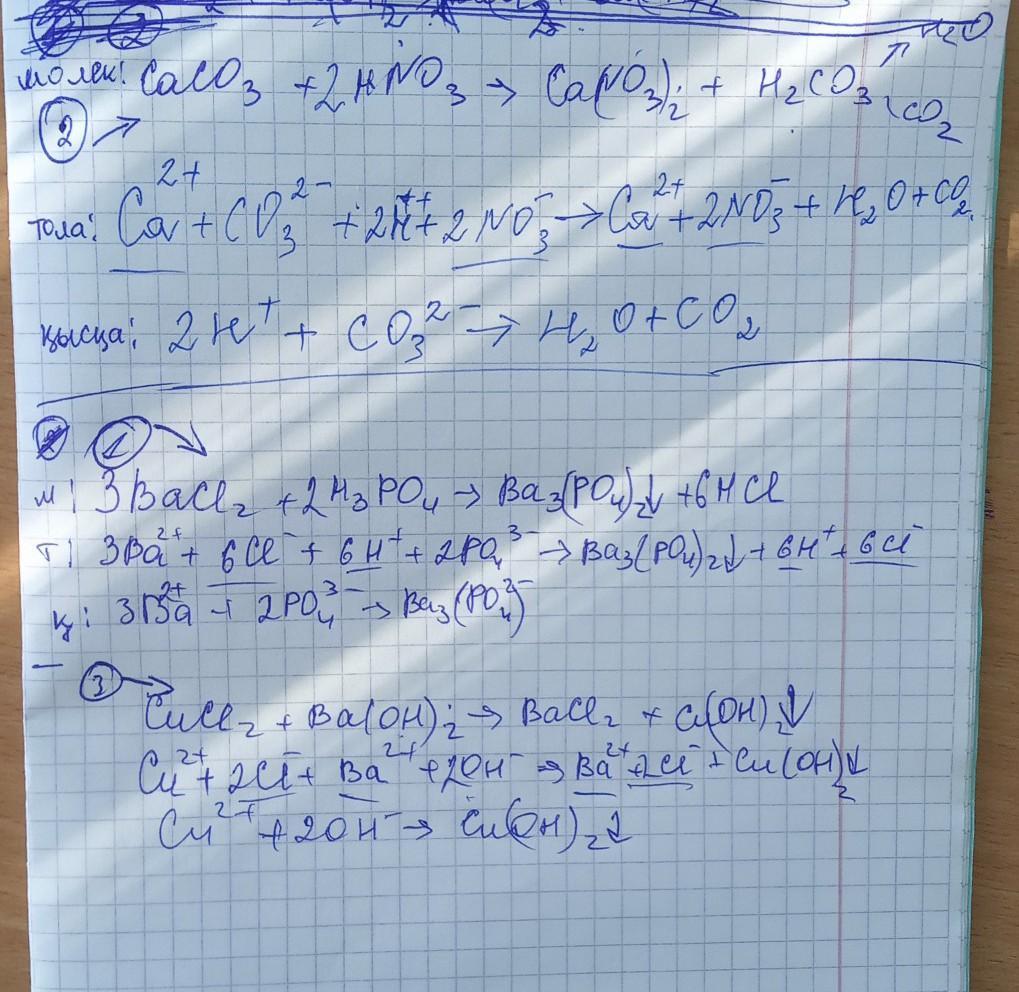 H₂O
молек: CaCO₃ + 2HNO₃ → Ca(NO₃)₂ + H₂CO₃ CO₂
2
тола: Ca²⁺ + CO₃²⁻ + 2H⁺ + 2NO₃⁻ → Ca²⁺ + 2NO₃⁻ + H₂O + CO₂
қысқа: 2H⁺ + CO₃²⁻ → H₂O + CO₂
1
м: 3BaCl₂ + 2H₃PO₄ → Ba₃(PO₄)₂↓ + 6HCl
т: 3Ba²⁺ + 6Cl⁻ + 6H⁺ + 2PO₄³⁻ → Ba₃(PO₄)₂↓ + 6H⁺ + 6Cl⁻
қ: 3Ba²⁺ + 2PO₄³⁻ → Ba₃(PO₄)
3
CuCl₂ + Ba(OH)₂ → BaCl₂ + Cu(OH)₂↓
Cu²⁺ + 2Cl⁻ + Ba²⁺ + 2OH⁻ → Ba²⁺ + 2Cl⁻ + Cu(OH)₂↓
Cu²⁺ + 2OH⁻ → Cu(OH)₂↓